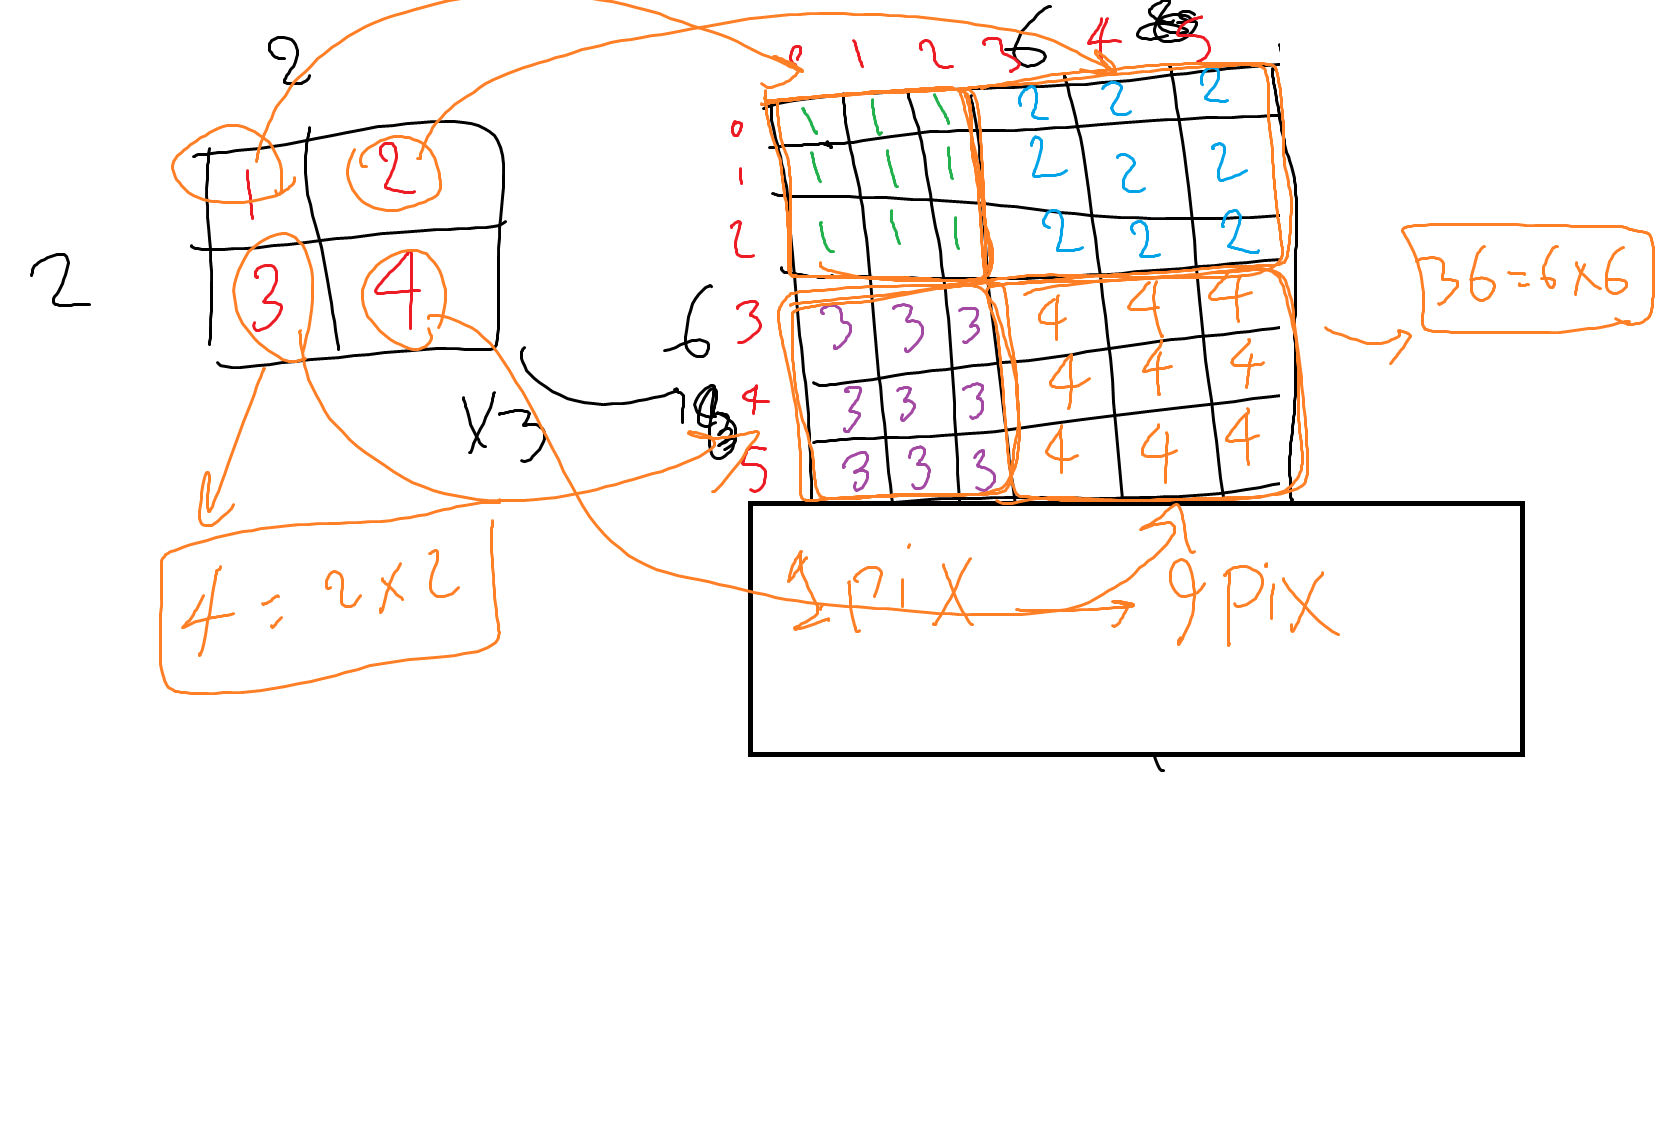 2
2
1 2
3 4
x3
4 = 2x2
6
6
0 1 2 3 4 5
0 1 1 1 2 2 2
1 1 1 1 2 2 2
2 1 1 1 2 2 2
3 3 3 3 4 4 4
4 3 3 3 4 4 4
5 3 3 3 4 4 4
36=6x6
1 pix 9 pix